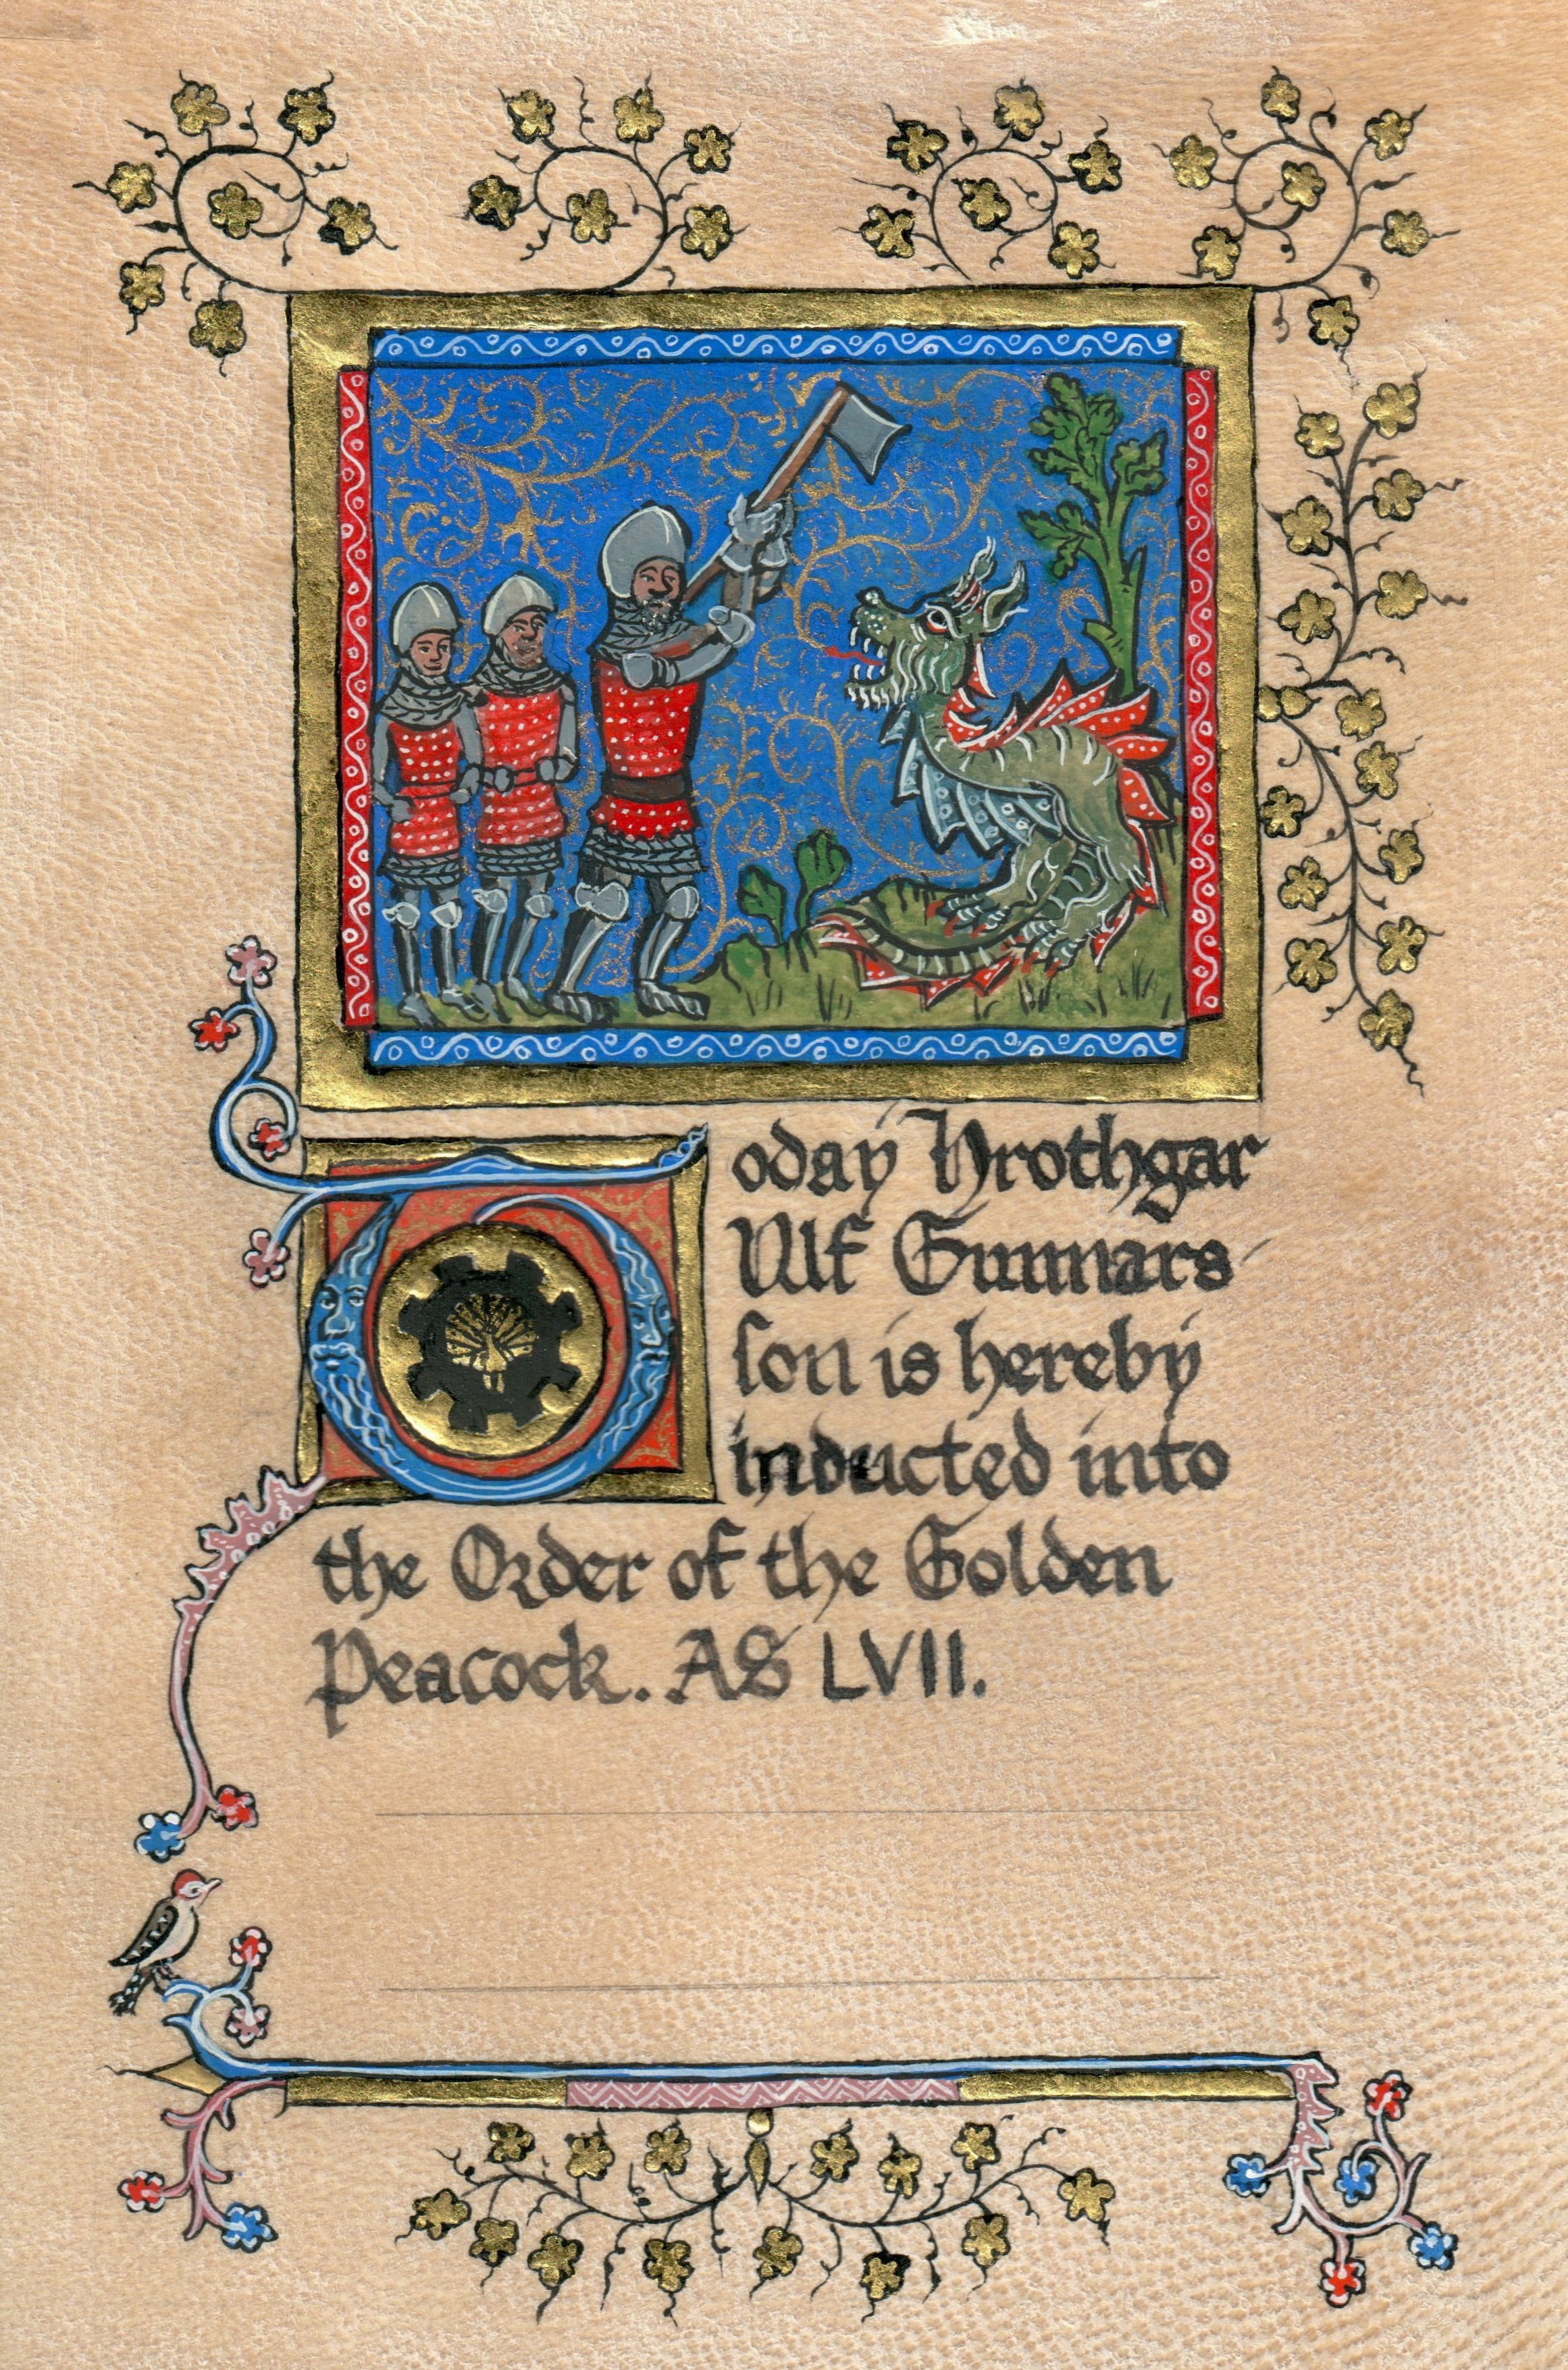 Today Hrothgar
Ulf Gunnars-
son is hereby
inducted into
the Order of the Golden
Peacock. AS LVII.